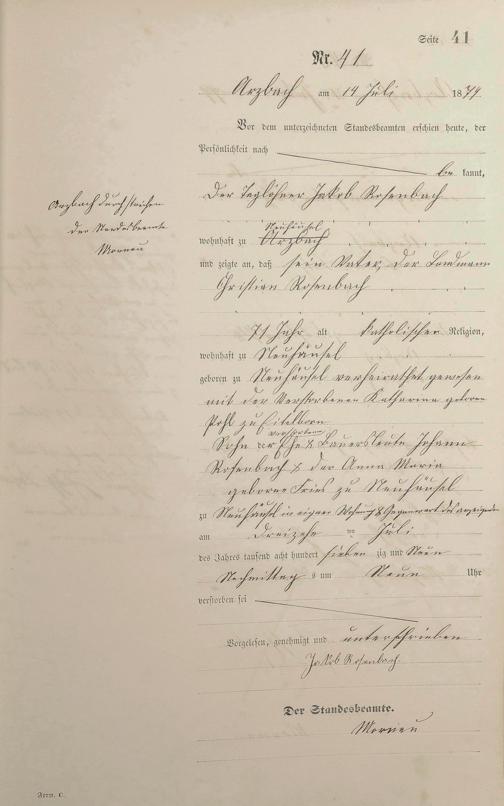 Seite 41
Nr. 41
Arzbach am 14 Juli 1879
Vor dem unterzeichneten Standesbeamten erschien heute, der
Persönlichkeit nach
be kannt,
Der Taglöhner Jakob Rosenbach
Arzbach durchstrichen
der Standesbeamte
Neuhäusel
wohnhaft zu Arzbach
und zeigte an, daß sein Vater, der Landmann
Christian Rosenbach
71 Jahr alt katholischer Religion,
wohnhaft zu Neuhäusel
geboren zu Neuhäusel verheirathet gewesen
mit der Verstorbenen Katharine geborene
Pohl zu Eitelborn
verstorbenen
Sohn der Ehe & Bauersleute Johann
Rosenbach & der Anna Maria
geborne Fries zu Neuhäusel
zu Neuhäusel in eigner Wohnung & Gegenwart des Anzeigenden
am dreizehn ten Juli
des Jahres tausend acht hundert sieben zig und Neun
Nachmittag s um Neun Uhr
verstorben sei
Vorgelesen, genehmigt und unterschrieben
Jakob Rosenbach
Der Standesbeamte.
Form. C.